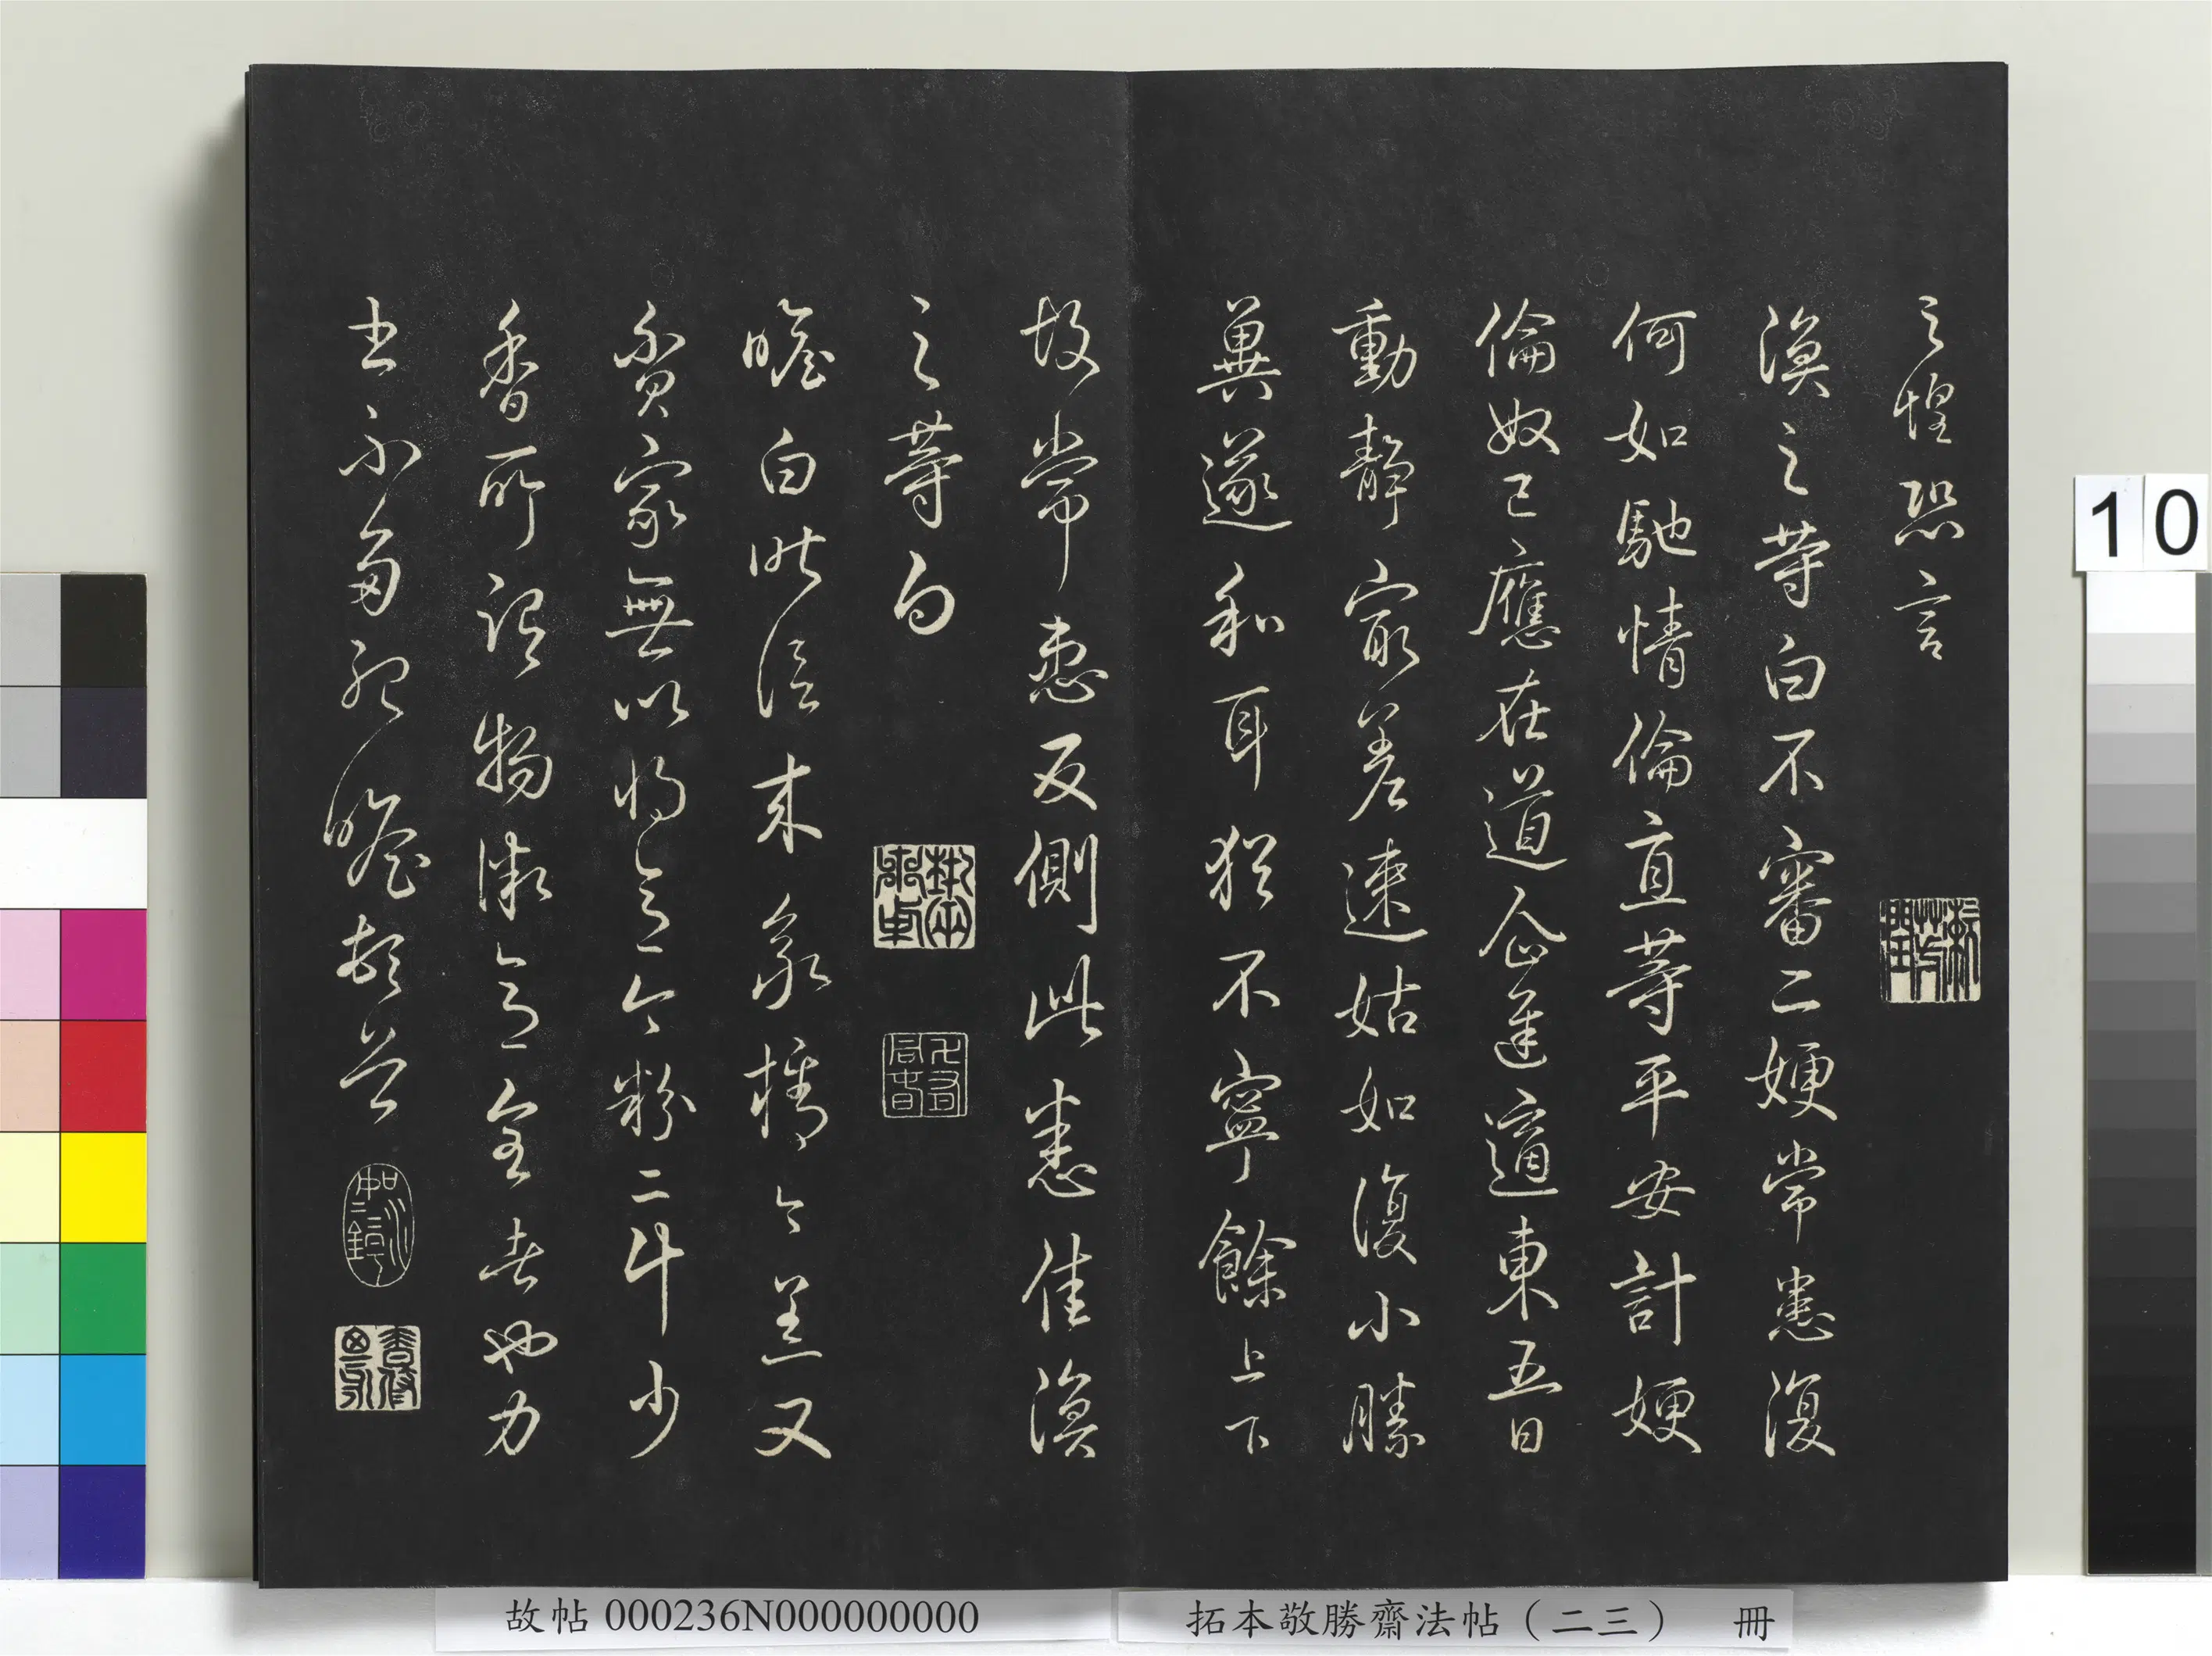 之惶恐言
渙之等白不審二嫂常患復
何如馳情倫直等平安計嫂
倫奴已應在道企遲適東五日
動靜冣差速姑如復小勝
冀遂和耳猶不寧餘上下
故常患反側此悉佳渙
之等白
瞻白昨信未又
貧家無以將意今粉二斗少
香所物微意全去也力
書不多瞻頓首
10
故帖 000236N000000000
拓本敬勝齋法帖（二三） 冊